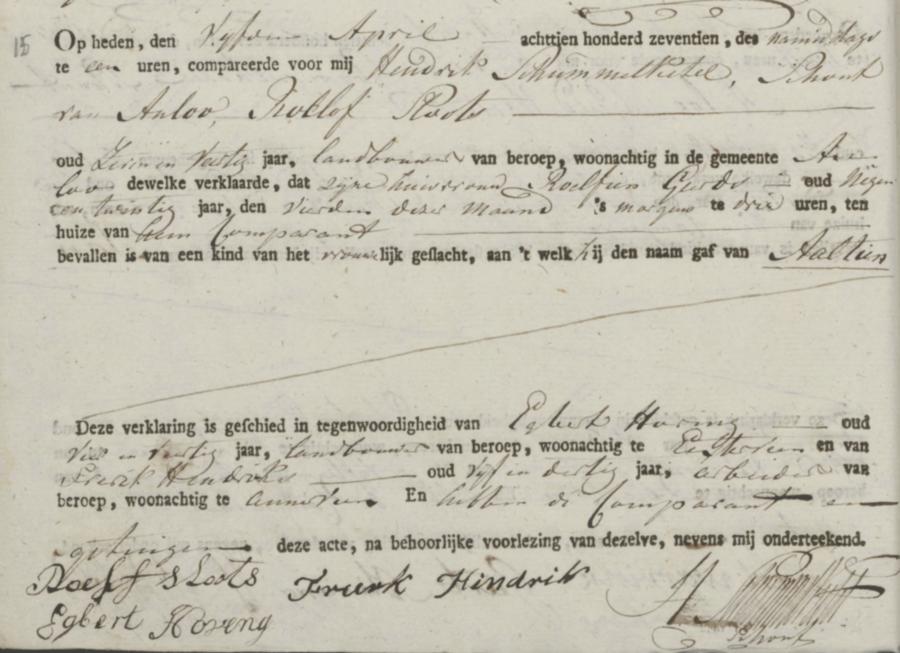 15
Op heden, den Vyfden April achttien honderd zeventien, des namiddags
te een uren, compareerde voor mij Hendrik Schummelketel, Schout
van Anloo, Roelof Sloots
oud Zeven en Veertig jaar, landbouwer van beroep, woonachtig in de gemeente An-
loo dewelke verklaarde, dat zyne huisvrouw Roelfien Geerds oud Negen
en twintig jaar, den Vierden dezer maand 's morgens te drie uren, ten
huize van hem Comparant
bevallen is van een kind van het vrouwelijk geslacht, aan 't welk hij den naam gaf van Aaltien
Deze verklaring is geschied in tegenwoordigheid van Egbert Hoving oud
Vier en Veertig jaar, landbouwer van beroep, woonachtig te Eexterveen en van
Freerk Hendriks oud Vyf en dertig jaar, arbeider van
beroep, woonachtig te Annerveen En hebben de Comparant en
getuigen deze acte, na behoorlijke voorlezing van dezelve, nevens mij onderteekend.
Roelf Sloots Freerk Hindrik H Schummelketel
Egbert Hoveng Schout